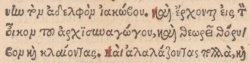 νίω τὸν ἀδελφὸν ἰακώβου. καὶ ἔρχονται εἰς τὸν
οἶκον τοῦ ἀρχισυναγώγου, καὶ θεωρεῖ θόρυ
βον καὶ κλαίοντας, καὶ ἀλαλάζοντας πολλὰ, καὶ